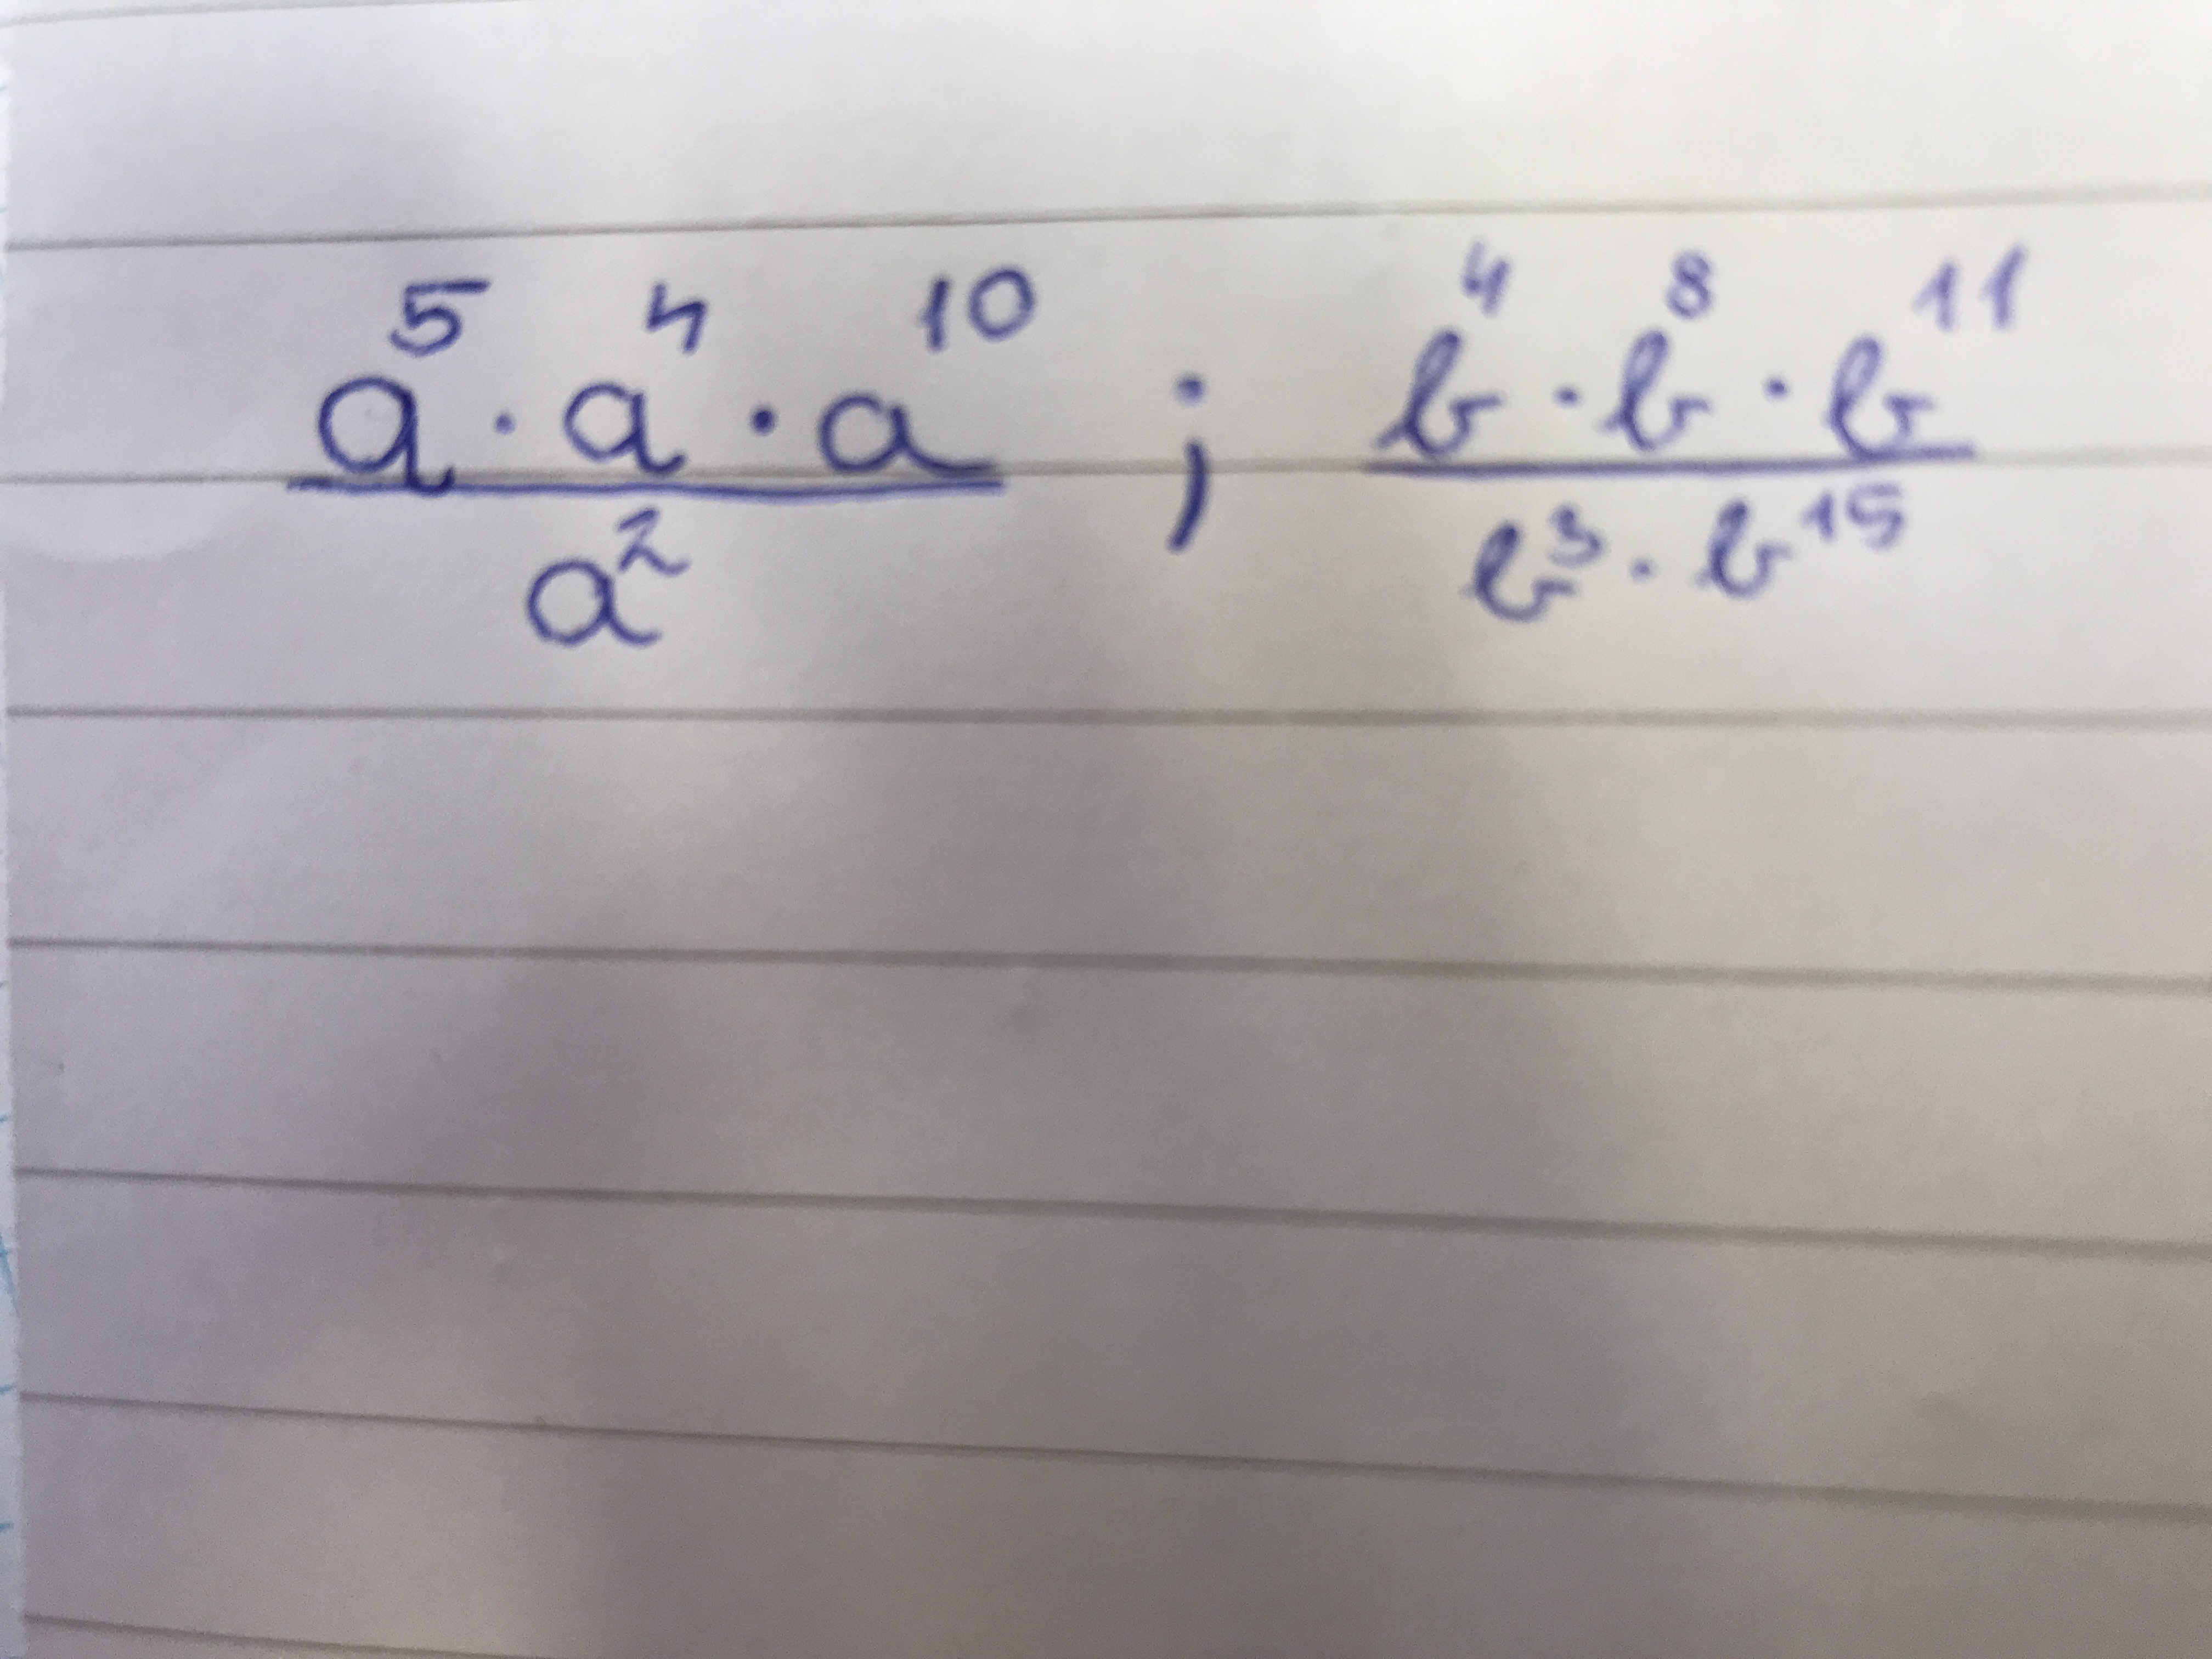 a⁵ · a⁴ · a¹⁰ / a² ; b⁴ · b⁸ · b¹¹ / b³ · b¹⁵